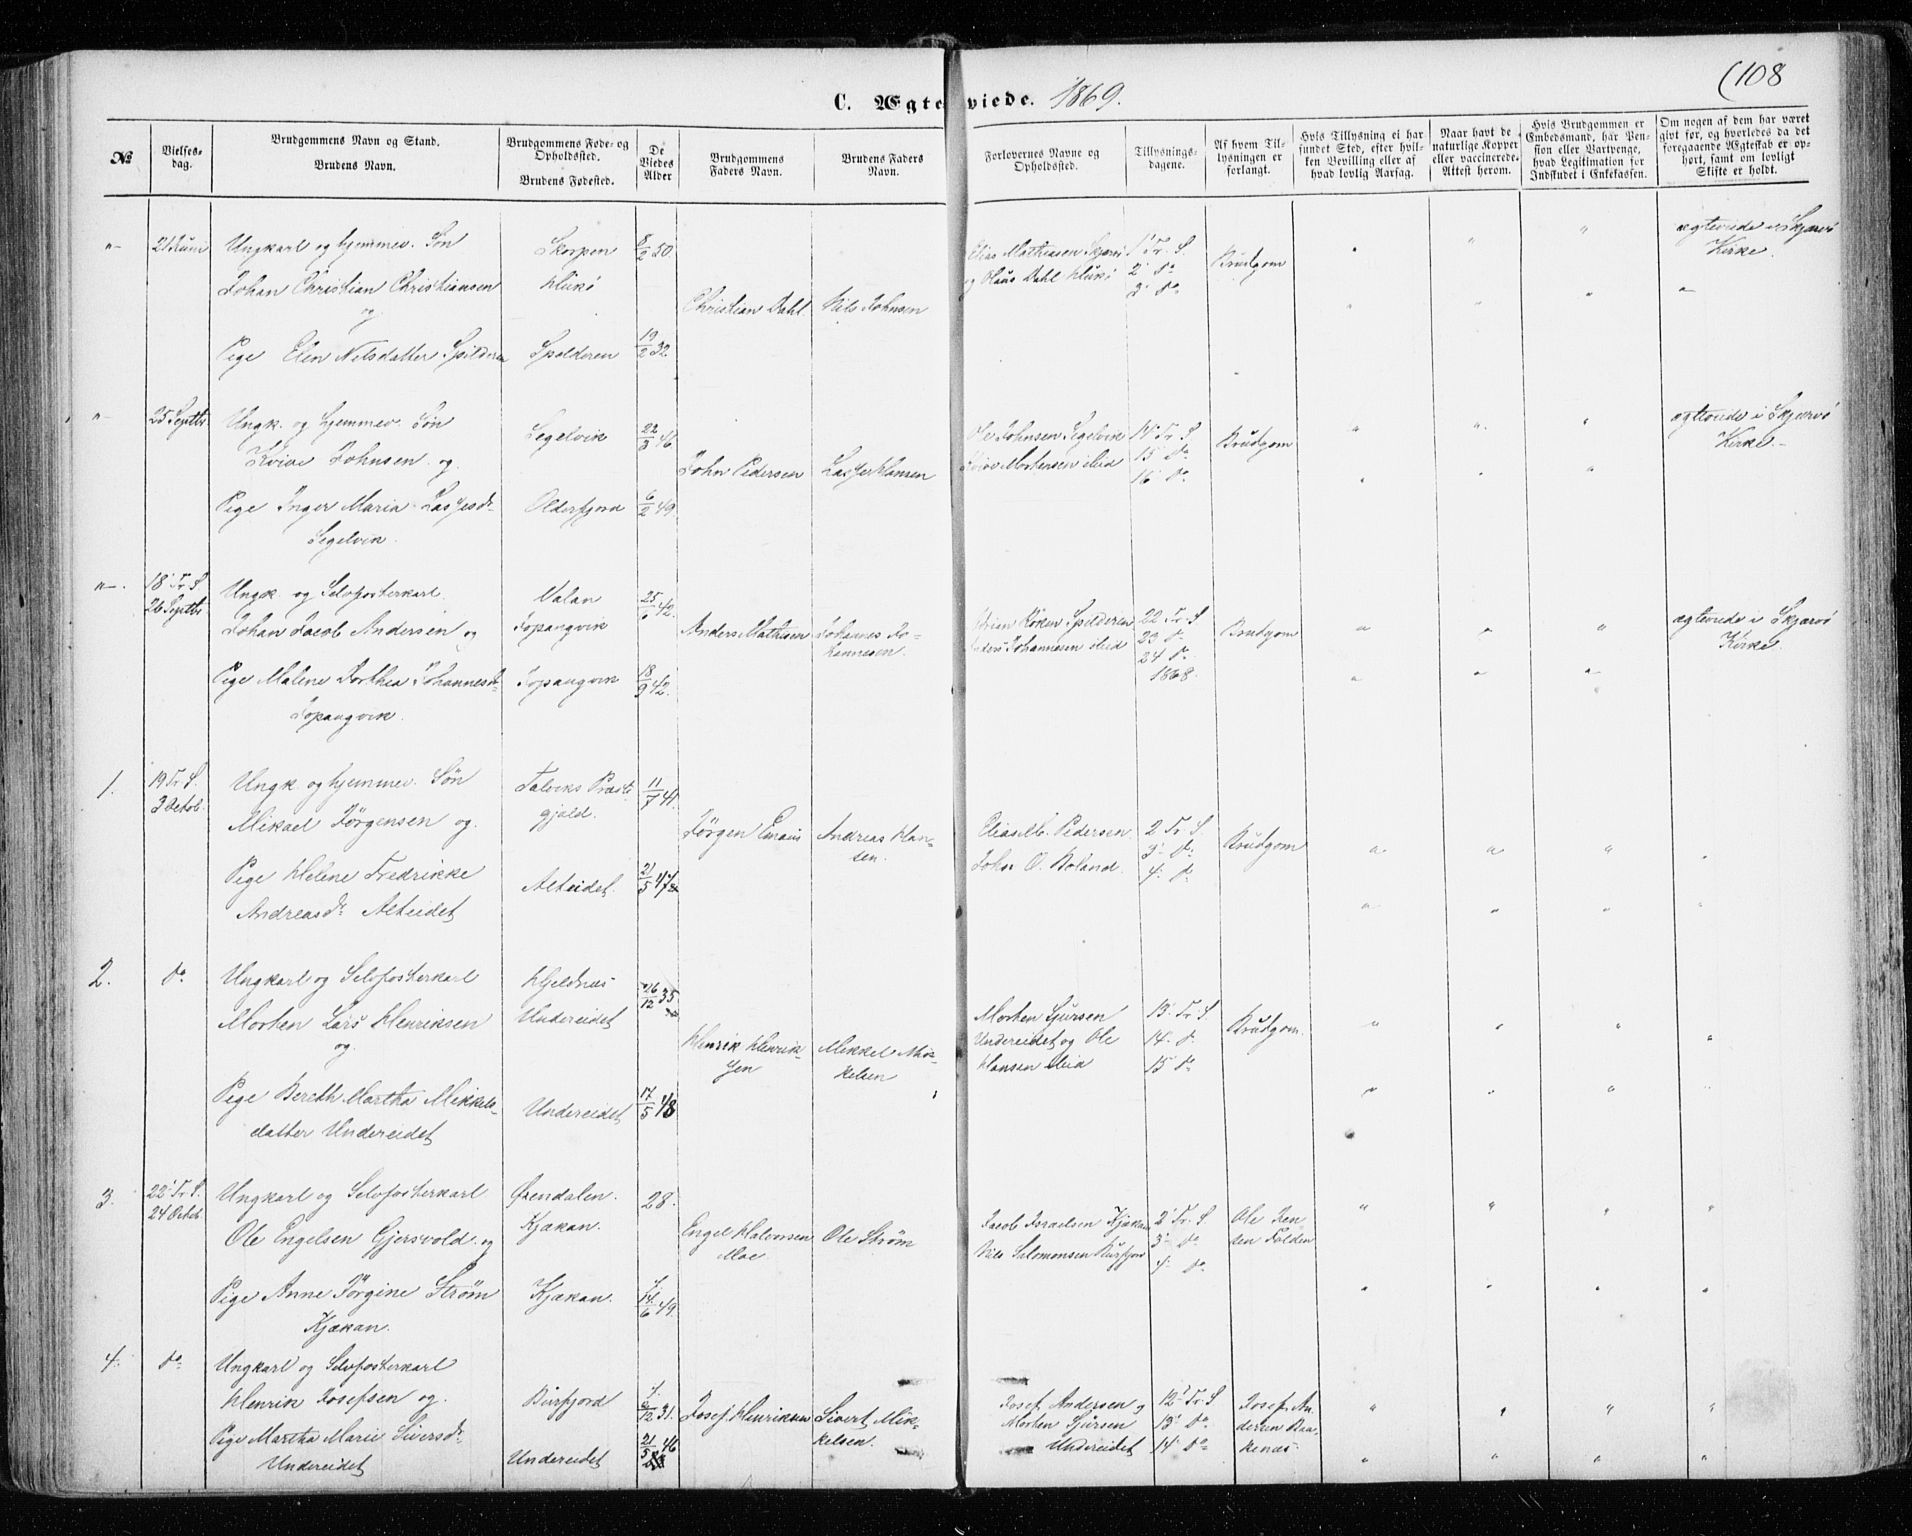 (108
C. Ægteviede. 1869.
№
Vielses-
dag.
Brudgommens Navn og Stand.
Brudens Navn.
Brudgommens Føde- og
Opholdssted.
Brudens Fødested.
De
Viedes
Alder
Brudgommens
Faders Navn.
Brudens Faders
Navn.
Forlovernes Navne og
Opholdssted.
Tillysnings-
dagene.
Af hvem Til-
lysningen er
forlangt.
Hvis Tillysning ei har
fundet Sted, efter hvil-
ken Bevilling eller af
hvad lovlig Aarsag.
Naar havt de
naturlige Kopper
eller vaccinerede.
Attest herom.
Hvis Brudgommen er
Embedsmand, har Pen-
sion eller Vartpenge,
hvad Legitimation for
Indskudet i Enkekassen.
Om nogen af dem har været
givt før, og hvorledes da det
foregaaende Ægteskab er op-
hørt, samt om lovligt
Skifte er holdt.
"- 21 Ungkarl og hjemmev. Søn
Johan Christian Christiansen
og
Pige Elen Nilsdatter Spilderen
Skorpen
Klukö
Spolderen
8/2 50
19/2 32
Christian Dahl
Nils Johnsen
Elias Mathiesen Skjærvö
og Olaus Dahl Klukö
1' Tr. S.
2' do
3' do
Brudgom
ægteviede i Skjærvö
Kirke.
"- 25 Septbr
Ungk. og hjemmev. Søn
Kvive Johnsen og
Pige Inger Maria Lassesdr
Segelvik.
Segelvik
Olderfjord
22/3 46
6/2 49
John Pedersen
Lasse Hansen
Ole Johnsen Segelvik
Mortensen ibid
14' Tr. S
15' do
16' do
Brudgom
ægteviede i Skjærvö
Kirke.-
"-. 18' Tr. S
26 Septbr
Ungk. og Selvfosterkarl.
Johan Jacob Andersen og
Pige Malene Dorthea Johannesdr
Jøpangvik.
Valan
Jøpangvik
Jøpangvik
25/6 42.
18/9 42.
Anders Mathisen
Johannes Jo-
hannesen.
Spilderen
Johannesen ibid
22 Tr. S
23 do
24 do
1868.
Brudgom
ægteviede i Skjærvö
Kirke.
1. 19 Tr. S.
3 Octob.
Ungk. og hjemmev. Søn
Mikael Jörgensen og
Pige Helene Fredrikke
Andreasdr Alteidet
Talviks Præste-
gjæld.
Alteidet.
11/7 41.
21/5 47
Jörgen Emaus
Andreas Han-
sen.
Elias M. Pedersen
John O. Boland.
2 Tr. S.
3' do
4' do
Brudgom
2. do
Ungkarl og Selvfosterkarl
Morten Lars Henriksen
og
Pige Bereth Martha Mikkels-
datter Undereidet
Kjeldnes
Undereidet
Undereidet
26/12 35
17/5 48
Henrik Henrik-
sen
Mikkel Mik-
kelsen
Morten Sjursen
Undereidet og Ole
Hansen ibid
13' Tr. S.
14' do
15 do
Brudgom.
3. 22' Tr. S.
24 Octob.
Ungkarl og Selvfosterkarl
Ole Engelsen Gjersvold og
Pige Anne Jörgine Ström
Kjækan.
Ørendalen.
Kjækan.
Kjækan.
28.
14/6 49.
Engel Halvorsen
Moe
Ole Ström
Jacob Israelsen Kjækan
Nils Salomonsen Burfjord
2' Tr. S.
3' do
4' do
Ole Jen-
sen Folden
4. do
Ungkarl og Selvfosterkarl
Henrik Josefsen og
Pige Martha Marie Siversdr
Undereidet
Burfjord
Undereidet
2/12 31.
21/5 46
Josef Henriksen
Sivert Mik-
kelsen.
Josef Andersen og
Morten Sjursen
Undereidet
12' Tr. S
13' do
14' do
Josef An-
dersen Baa-
kenæs